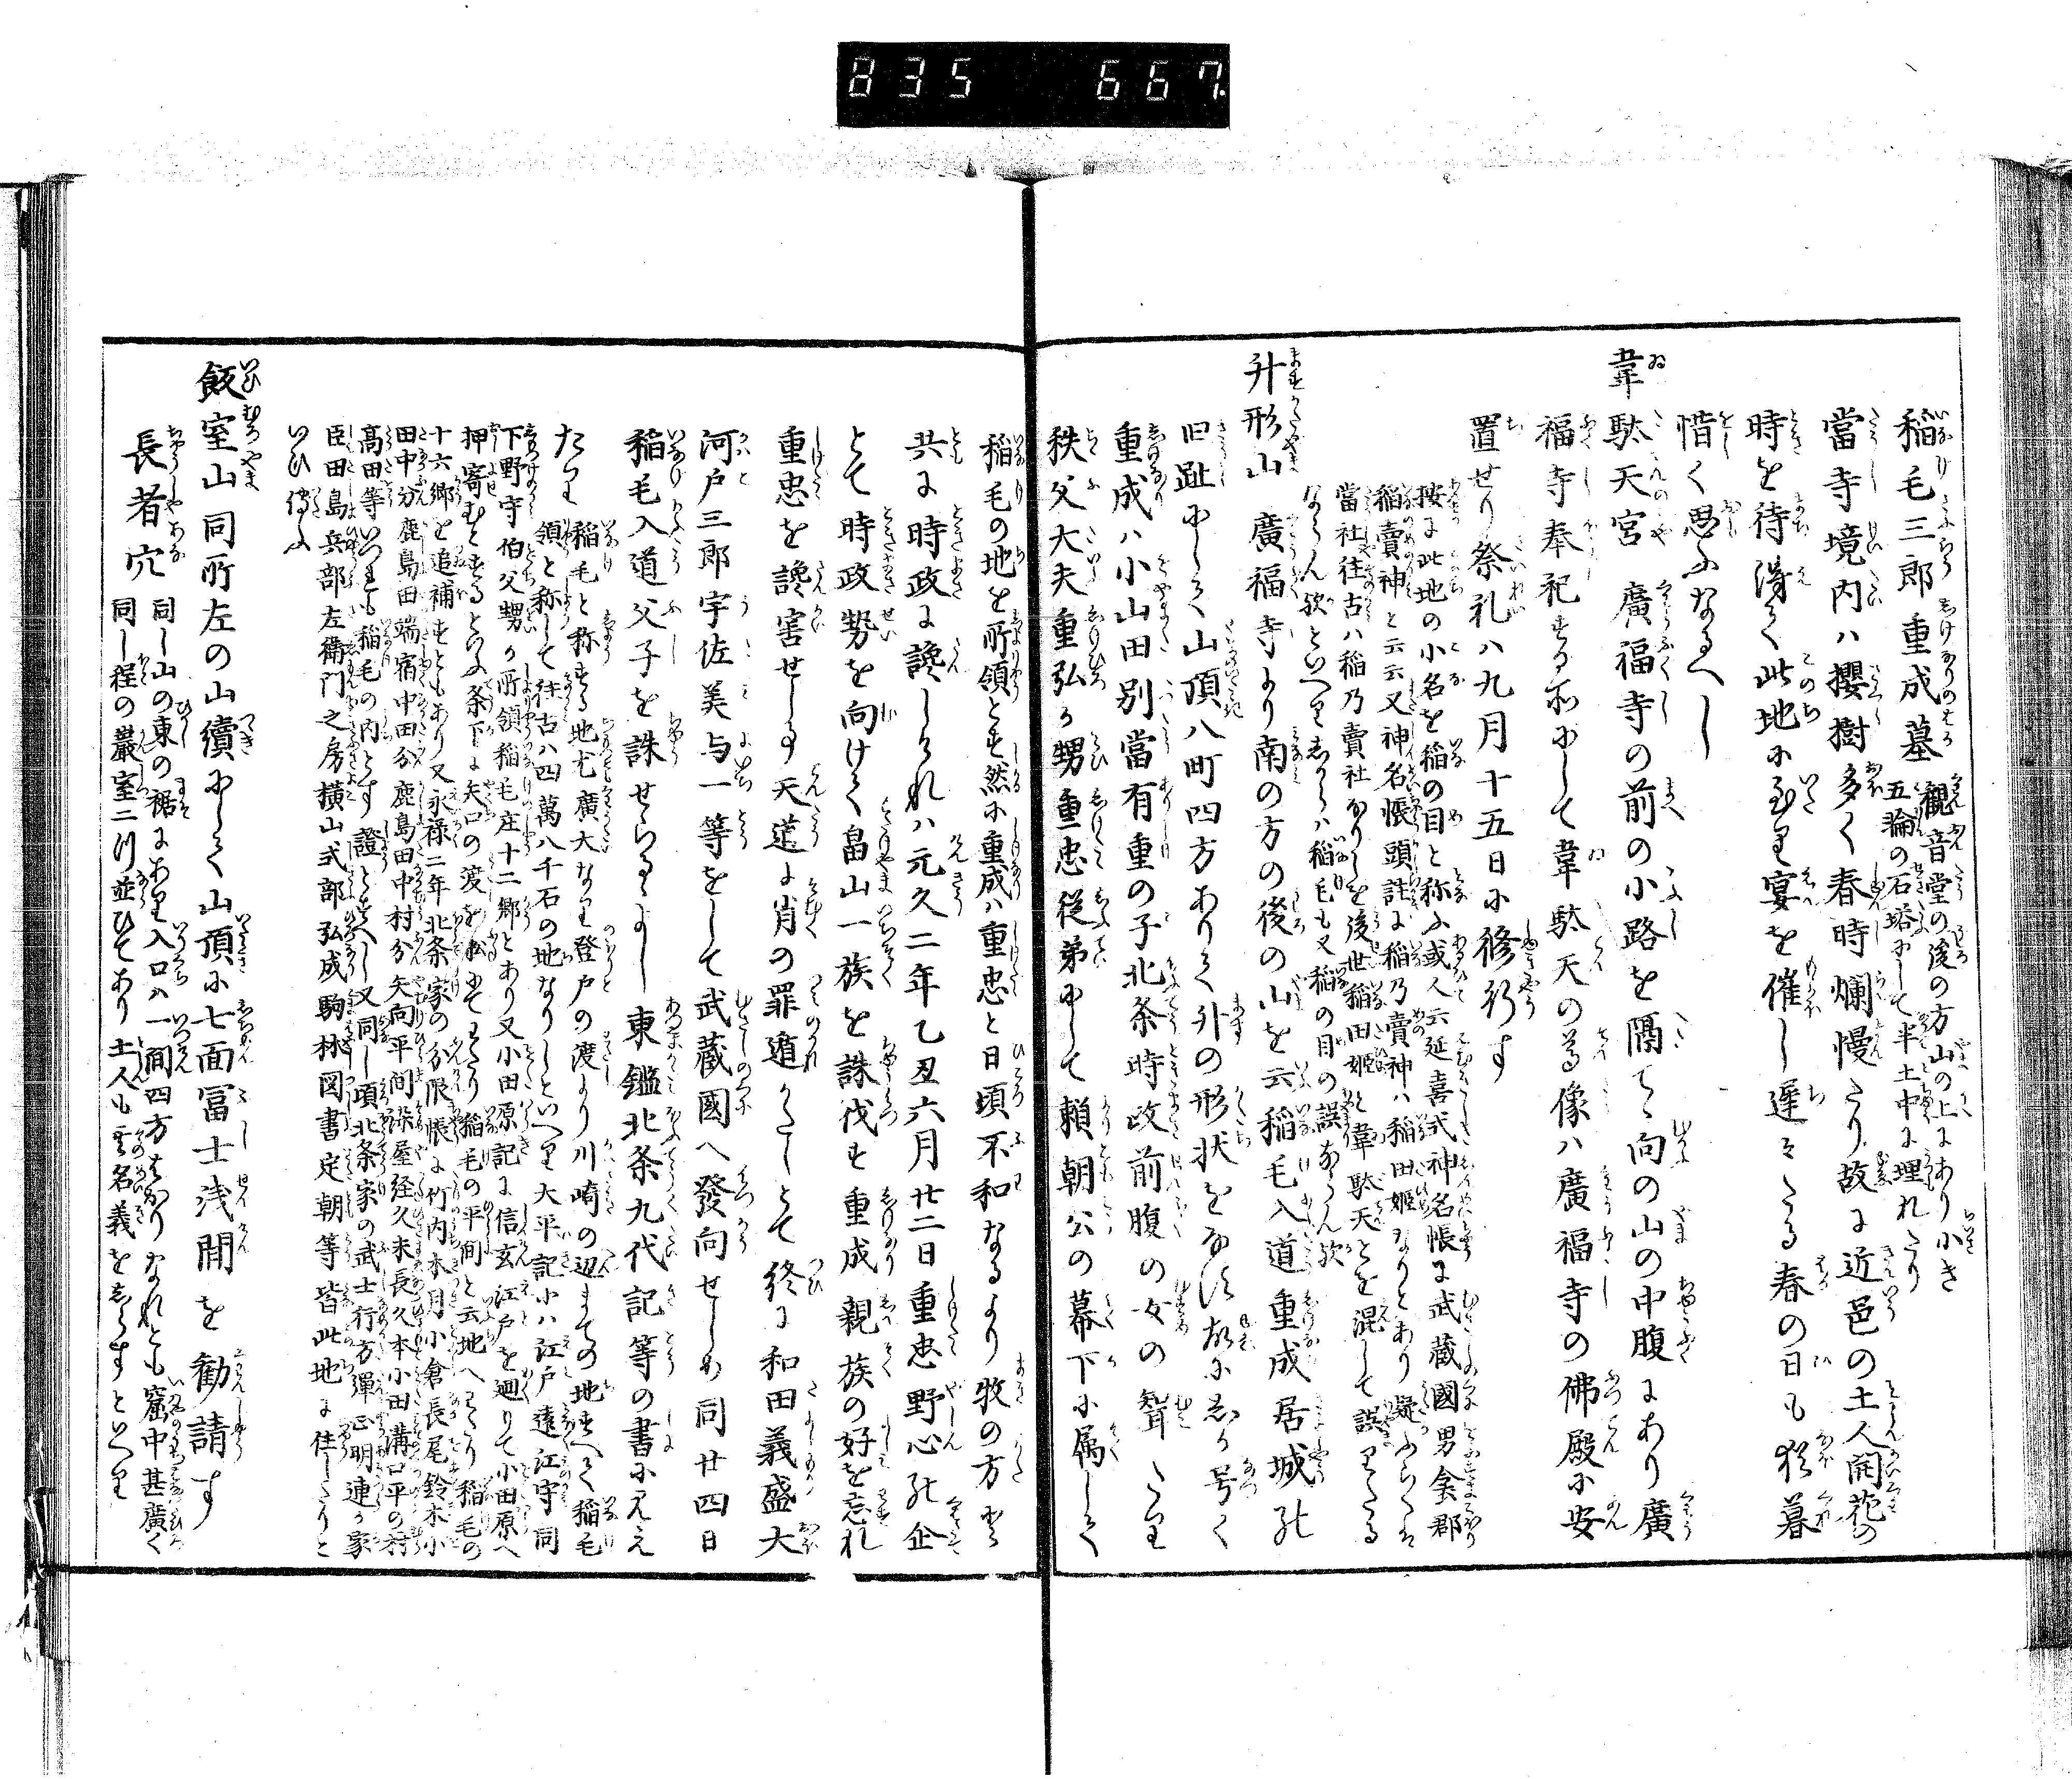 835 667.
稲毛三郎重成墓 観音堂の後の方山の上にあり小き
五輪の石塔にして半土中に埋れたり
當寺境内ハ櫻樹多く春時爛慢たり故に近邑の土人開花の
時を待得て此地に至り宴を催し遅々たる春の日も猶暮
惜く思ふなるへし
韋駄天宮 廣福寺の前の小路を隔てゝ向の山の中腹にあり廣
福寺奉祀する所にして韋駄天の尊像ハ廣福寺の佛殿に安
置せり祭礼ハ九月十五日に修行す
按に此地の小名を稲の目と称ふ或人云延喜式神名帳に武蔵國男衾郡
稲賣神と云云又神名帳頭註に稲乃賣神ハ稲田姫なりとあり擬ふらくは
當社往古ハ稲乃賣社なりしを後世稲田姫と韋駄天とを混して誤りたる
ならん歟といへりしからハ稲毛も又稲の目の誤ならん歟
升形山 廣福寺より南の方の後の山を云稲毛入道重成居城の
旧趾にして山頂八町四方ありて升の形状をなす故にしか号く
重成ハ小山田別當有重の子北条時政前腹の女の聟たり
秩父大夫重弘か甥重忠従弟にして頼朝公の幕下に属して
稲毛の地を所領とす然に重成ハ重忠と日頃不和なるより牧の方と
共に時政に讒しけれハ元久二年乙丑六月廿二日重忠野心の企
とて時政勢を向けて畠山一族を誅伐す重成親族の好を忘れ
重忠を讒害せしる天道に背の罪遁かたしとて終に和田義盛大
河戸三郎宇佐美与一等をして武蔵國へ發向せしめ同廿四日
稲毛入道父子を誅せらるゝよし東鑑北条九代記等の書に見え
たり 稲毛と称する地尤廣大なり登戸の渡より川崎の辺まての地すへて稲毛
領と称して往古ハ四萬八千石の地なりしといへり大平記にハ江戸遠江守同
下野守伯父甥か所領稲毛庄十二郷とあり又小田原記に信玄江戸を廻りて小田原へ
押寄むとするといふ条下に矢口の渡を船にてわたり稲毛の平間と云地へわたり稲毛の
十六郷を追補すともあり又永禄二年北条家の分限帳に竹内本月小倉長尾鈴木小
田中分鹿島田端宿中田分鹿島田中村分矢向平間祢屋経久末長久本小田溝口平の村
高田等いつれも稲毛の内とす證とすへし又同し頃北条家の武士行方彈正明連か家
臣田島兵部左衛門之房横山式部弘成駒林図書定朝等皆此地に住したりと
いひ傳ふ
飯室山 同所左の山續にして山頂に七面冨士浅間を勧請す
長者穴 同し山の東の裾にあり入口ハ一間四方はかりなれとも窟中甚廣く
同し程の巖室二川並ひてあり土人も其名義をしらすといへり